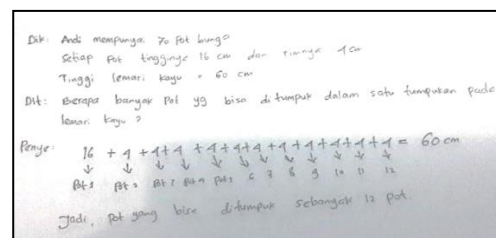 Dik: Andi mempunyai 70 Pot bunga
Setiap Pot tingginya 16 cm dan 4 cm
Tinggi lemari kayu = 60 cm
Dit: Berapa banyak Pot yg bisa ditumpuk dalam satu tumpukan pada
lemari kayu ?
Penye: 16 + 4 + 4 + 4 + 4 + 4 + 4 + 4 + 4 + 4 + 4 + 4 = 60 cm
↓ ↓ ↓ ↓ ↓ ↓ ↓ ↓ ↓ ↓ ↓ ↓
Pot 1 Pot 2 Pot 3 Pot 4 Pot 5 6 7 8 9 10 11 12
Jadi, Pot yang bisa ditumpuk sebanyak 12 pot.